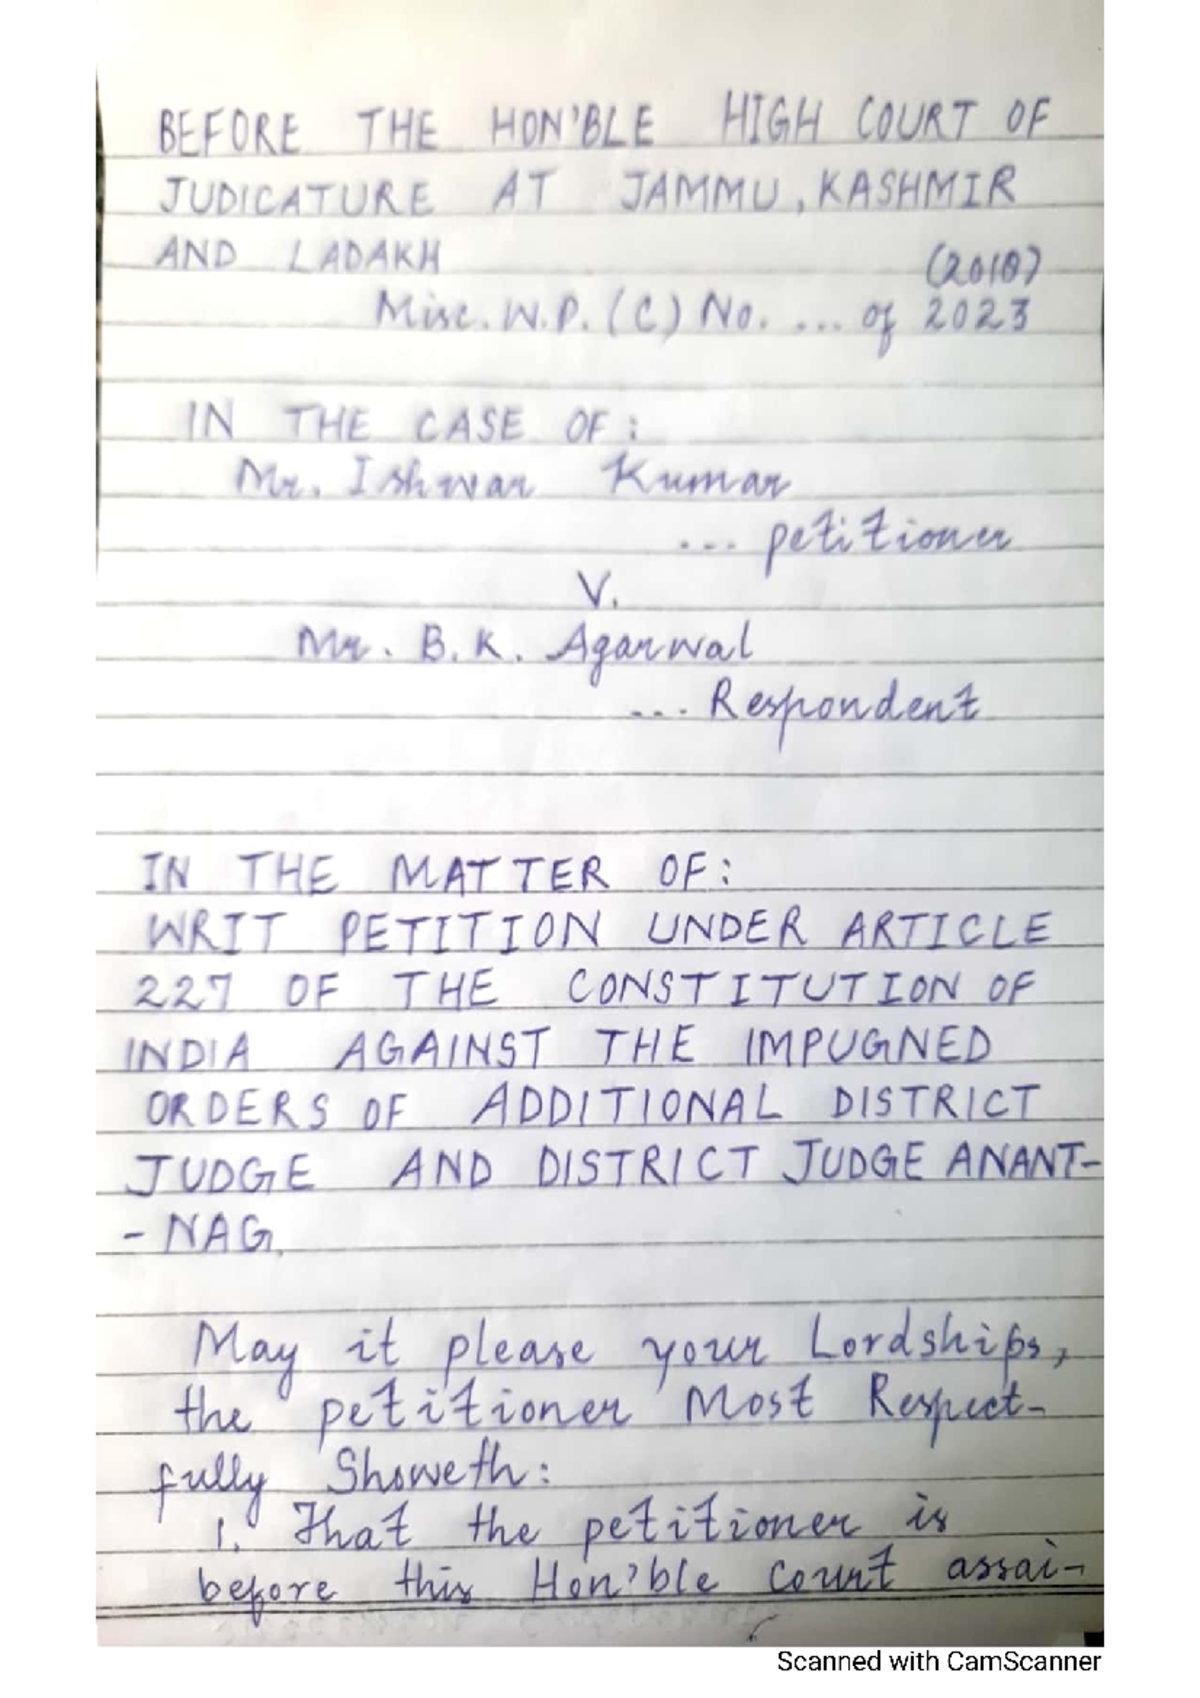 BEFORE THE HON'BLE HIGH COURT OF
JUDICATURE AT JAMMU, KASHMIR
AND LADAKH (2018)
Misc. W.P. (C) No. ... of 2023
IN THE CASE OF:
Mr. Ishwar Kumar
... petitioner
V.
Mr. B.K. Agarwal
... Respondent
IN THE MATTER OF:
WRIT PETITION UNDER ARTICLE
227 OF THE CONSTITUTION OF
INDIA AGAINST THE IMPUGNED
ORDERS OF ADDITIONAL DISTRICT
JUDGE AND DISTRICT JUDGE ANANT-
- NAG.
May it please your Lordships,
the petitioner Most Respect-
fully Showeth:
1. That the petitioner is
before this Hon'ble Court assai-
Scanned with CamScanner